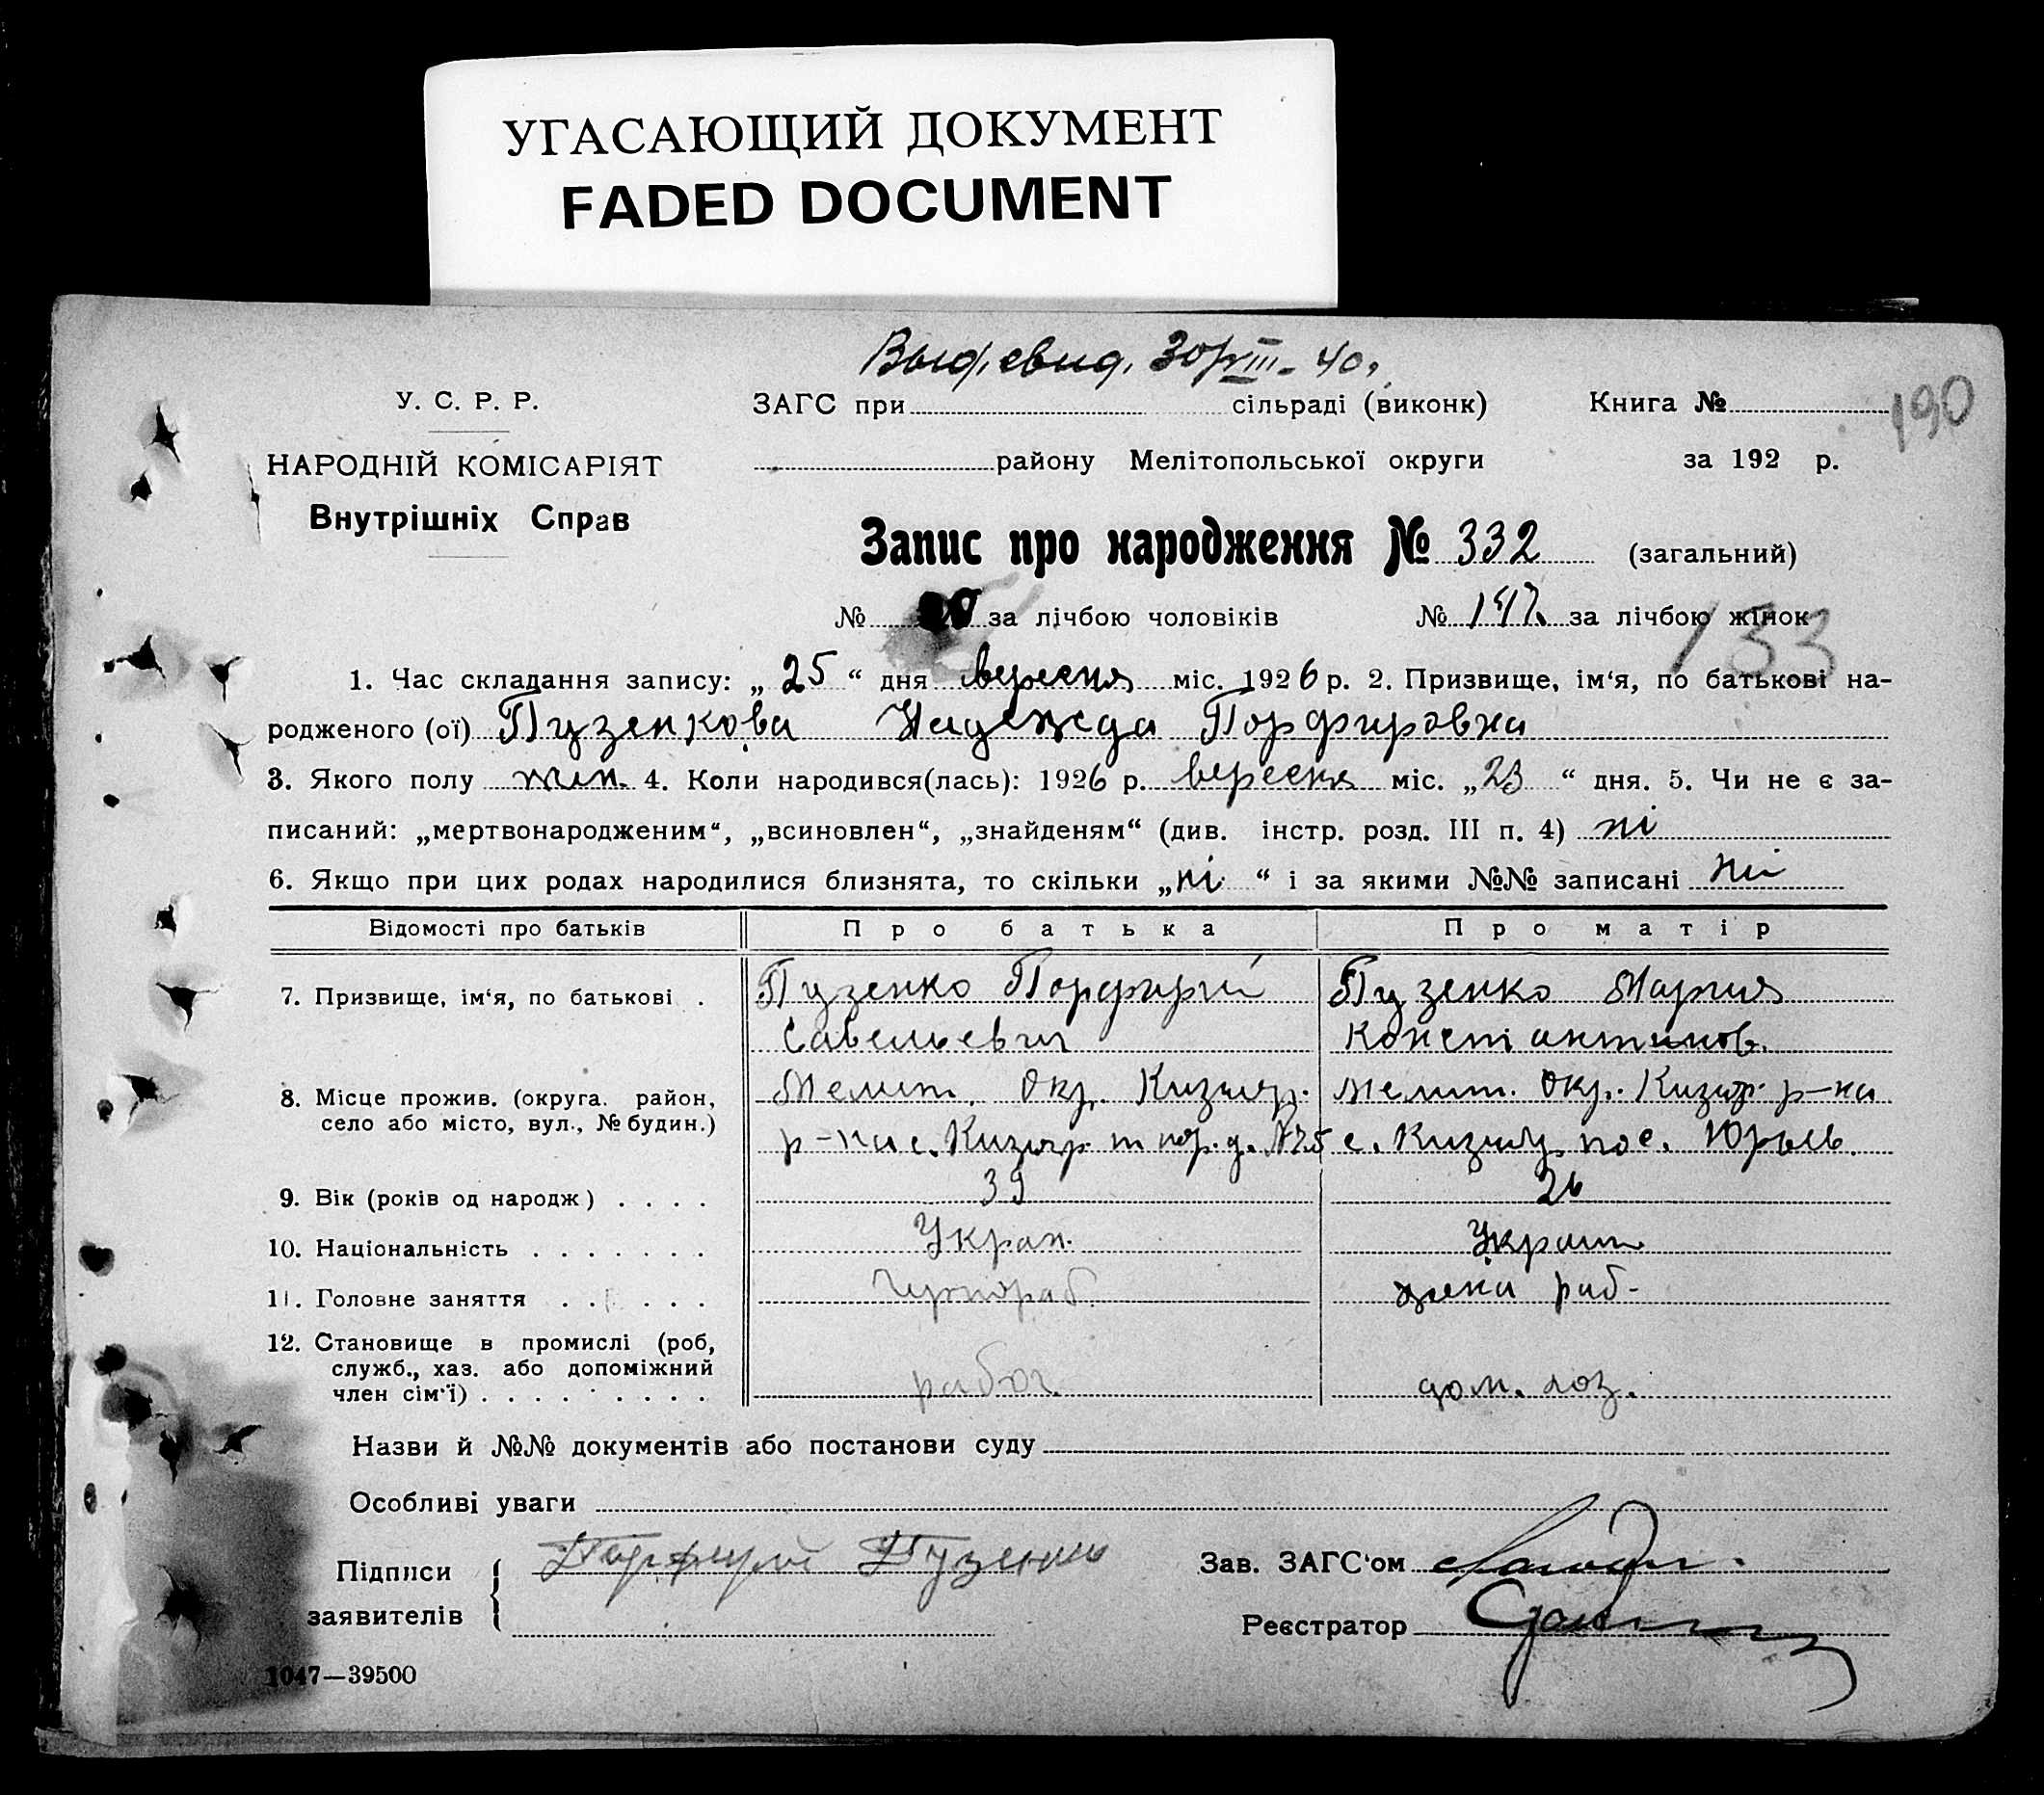 УГАСАЮЩИЙ ДОКУМЕНТ
FADED DOCUMENT
Выд. свид. 30/VIII-40.
У. С. Р. Р.
ЗАГС при сільраді (виконк) Книга №
190
НАРОДНІЙ КОМІСАРІЯТ
району Мелітопольської округи за 192 р.
Внутрішніх Справ
Запис про народження № 332 (загальний)
№ за лічбою чоловіків № 147 за лічбою жінок
133
1. Час складання запису: „ 25 “ дня вересня міс. 1926 р. 2. Призвище, ім‘я, по батькові на-
родженого (ої) Пузенкова Надежда Порфировна
3. Якого полу жін. 4. Коли народився(лась): 1926 р. вересня міс. „23 “ дня. 5. Чи не є за-
писаний: „мертвонародженим“, „всиновлен“, „знайденям“ (див. інстр. розд. III п. 4) ні
6. Якщо при цих родах народилися близнята, то скільки „ні “ і за якими №№ записані ні
Відомості про батьків Про батька Про матір
7. Призвище, ім‘я, по батькові . Пузенко Порфирій Пузенко Мария
Савельевич Константинов.
8. Місце прожив. (округа. район, Мелит. Окр. Кизияр. Мелит. Окр. Кизияр. р-на
село або місто, вул., № будин.) р-на с. Кизияр с. Кизияр пос. Юрьев.
9. Вік (років од народж) . . . . 39 26
10. Національність . . . . . . . Укран. Украин
11. Головне заняття . . . . . . Чернораб. жена раб-
12. Становище в промислі (роб,
служб., хаз. або допоміжний
член сім‘ї) . . . . . . . . . рабоч. дом. хоз.
Назви й №№ документів або постанови суду
Особливі уваги
Підписи Порфирий Пузенко Зав. ЗАГС‘ом
заявителів Реєстратор
1047—39500